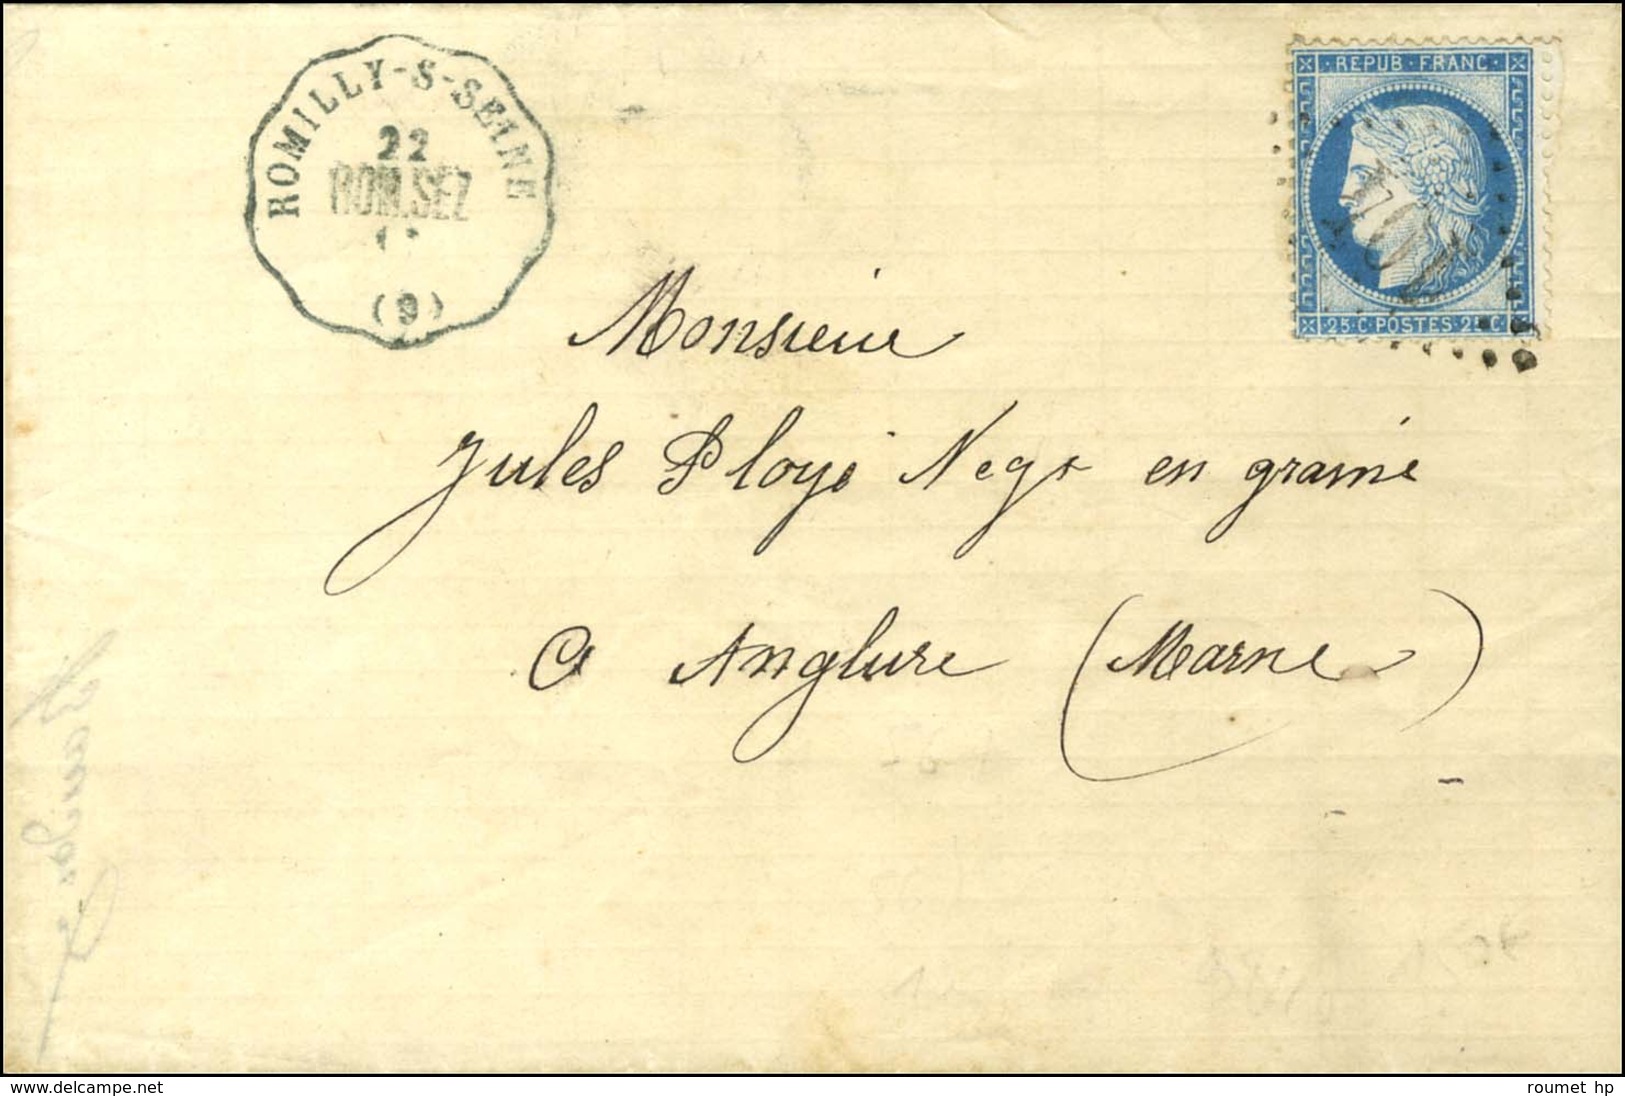 ROMILLY-S-SEINE
22
ROM.SEZ
(9)
REPUB·FRANC·
25·C·POSTES·25·C
Monsieur
Jules Ployé Negt en graine
A Anglure (Marne)
www.delcampe.net
roumet hp